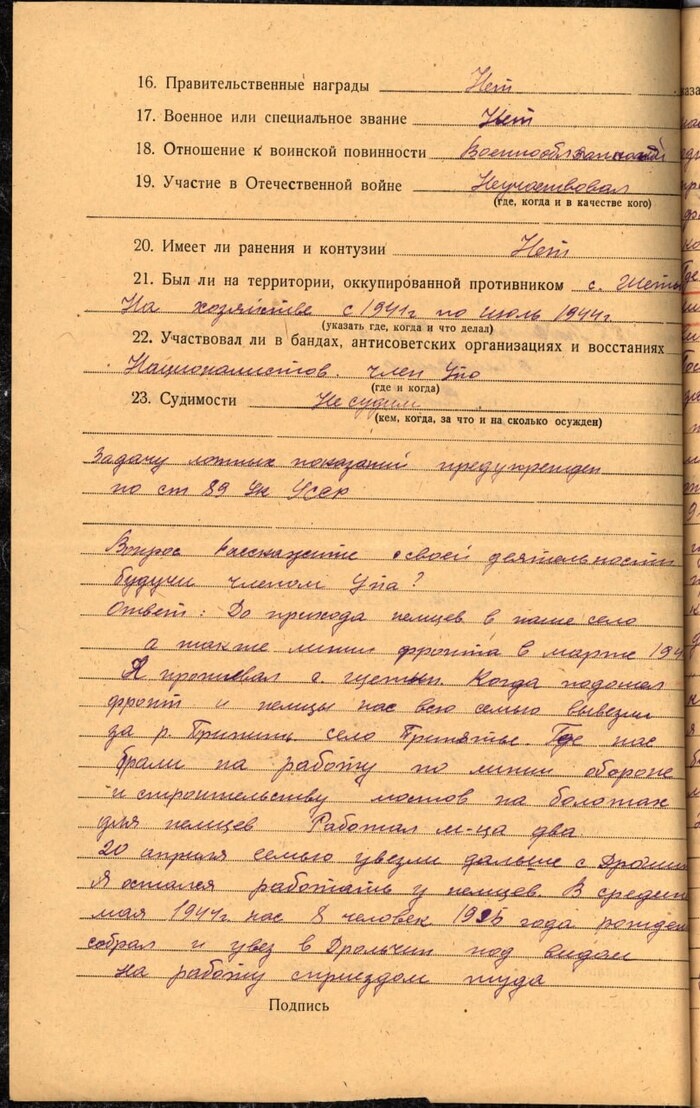 16. Правительственные награды Нет
17. Военное или специальное звание Нет
18. Отношение к воинской повинности Военнообязанный
19. Участие в Отечественной войне Неучаствовал
(где, когда и в качестве кого)
20. Имеет ли ранения и контузии Нет
21. Был ли на территории, оккупированной противником с.
На хозяйстве с 1941г по июль 1944г.
(указать где, когда и что делал)
22. Участвовал ли в бандах, антисоветских организациях и восстаниях
Националистов. член Упа
(где и когда)
23. Судимости Не судим
(кем, когда, за что и на сколько осужден)
Задачу ложных показаний предупрежден
по ст 89 Ук Усср
Вопрос Расскажите о своей деятельности
будучи членом Упа?
Ответ: До прихода немцев в наше село
а также линии фронта в марте 194
Я проживал с. Когда подошол
фронт и немцы нас всю семью вывезли
за р. село Где нас
брали на работу по линии обороне
и строительству мостов на болотах
для немцев Работал м-ца два.
20 апреля семью увезли дальше с
Я остался работать у немцев. В средин
мая 1944г. нас 8 человек 1925 года рожден
собрал и увез в под видом
на работу с приездом туда
Подпись